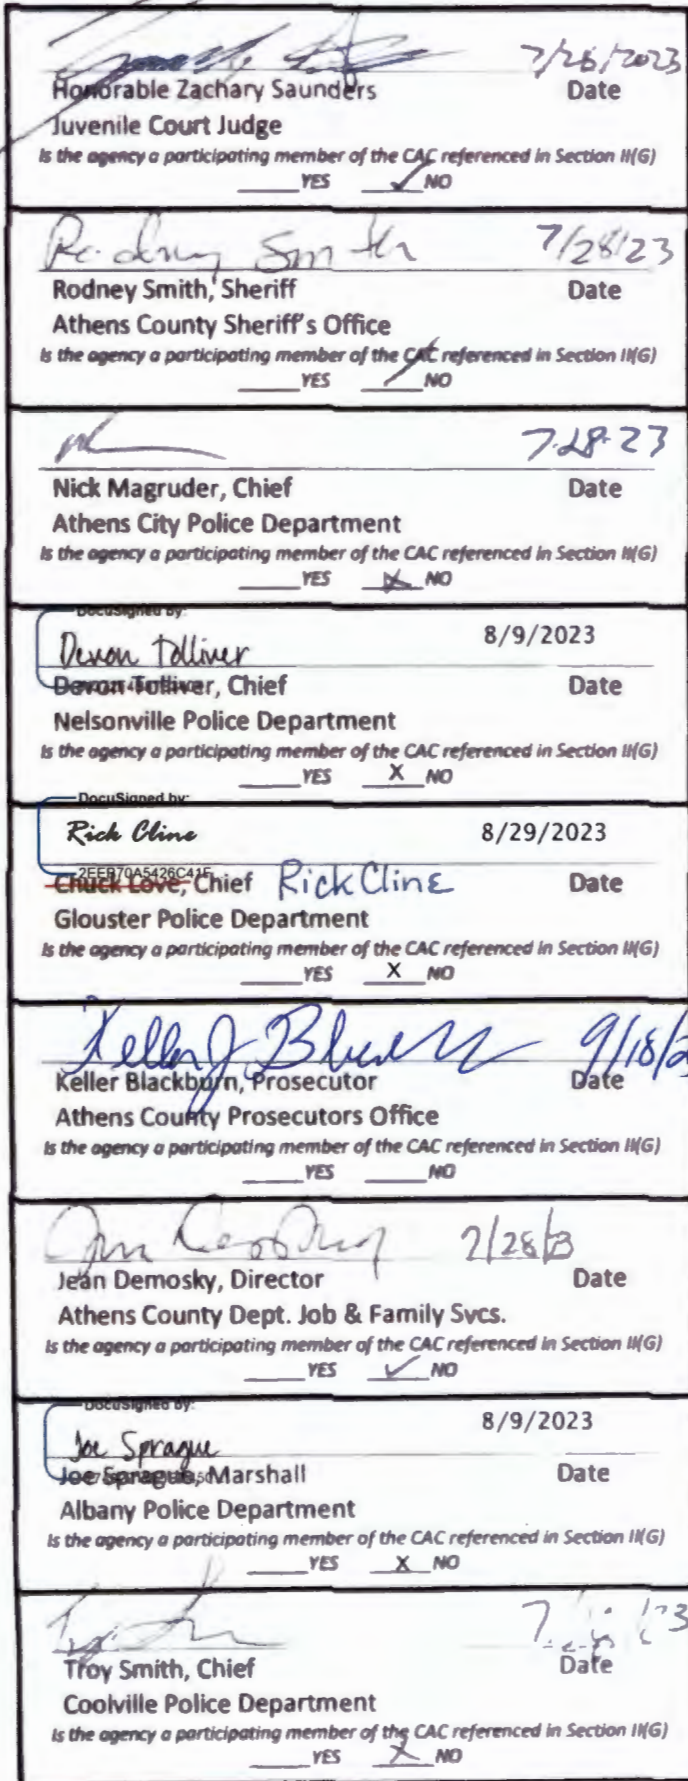 7/28/2023
Honorable Zachary Saunders Date
Juvenile Court Judge
Is the agency a participating member of the CAC referenced in Section II(G)
____YES ✓ NO
Rodney Smith 7/28/23
Rodney Smith, Sheriff Date
Athens County Sheriff's Office
Is the agency a participating member of the CAC referenced in Section II(G)
____YES ✓ NO
7.28.23
Nick Magruder, Chief Date
Athens City Police Department
Is the agency a participating member of the CAC referenced in Section II(G)
____YES X NO
DocuSigned by:
Devon Tolliver 8/9/2023
Devon Tolliver, Chief Date
Nelsonville Police Department
Is the agency a participating member of the CAC referenced in Section II(G)
____YES X NO
DocuSigned by:
Rick Cline 8/29/2023
Chuck Love, Chief Rick Cline Date
Glouster Police Department
Is the agency a participating member of the CAC referenced in Section II(G)
____YES X NO
Keller J. Blackburn 9/18/2
Keller Blackburn, Prosecutor Date
Athens County Prosecutors Office
Is the agency a participating member of the CAC referenced in Section II(G)
____YES ____NO
Jean Demosky 7/28/23
Jean Demosky, Director Date
Athens County Dept. Job & Family Svcs.
Is the agency a participating member of the CAC referenced in Section II(G)
____YES ✓ NO
DocuSigned by:
Joe Sprague 8/9/2023
Joe Sprague, Marshall Date
Albany Police Department
Is the agency a participating member of the CAC referenced in Section II(G)
____YES X NO
Troy Smith, Chief Date
Coolville Police Department
Is the agency a participating member of the CAC referenced in Section II(G)
____YES X NO